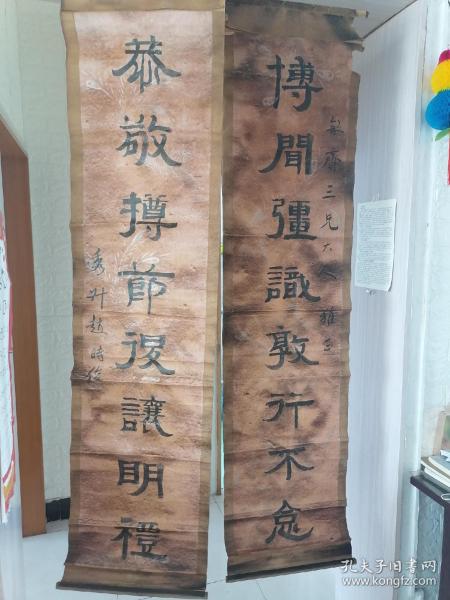 博聞彊識敦行不怠
齋三兄大人雅正
恭敬撙節退讓明禮
趙時
孔夫子旧书网
www.kongfz.com